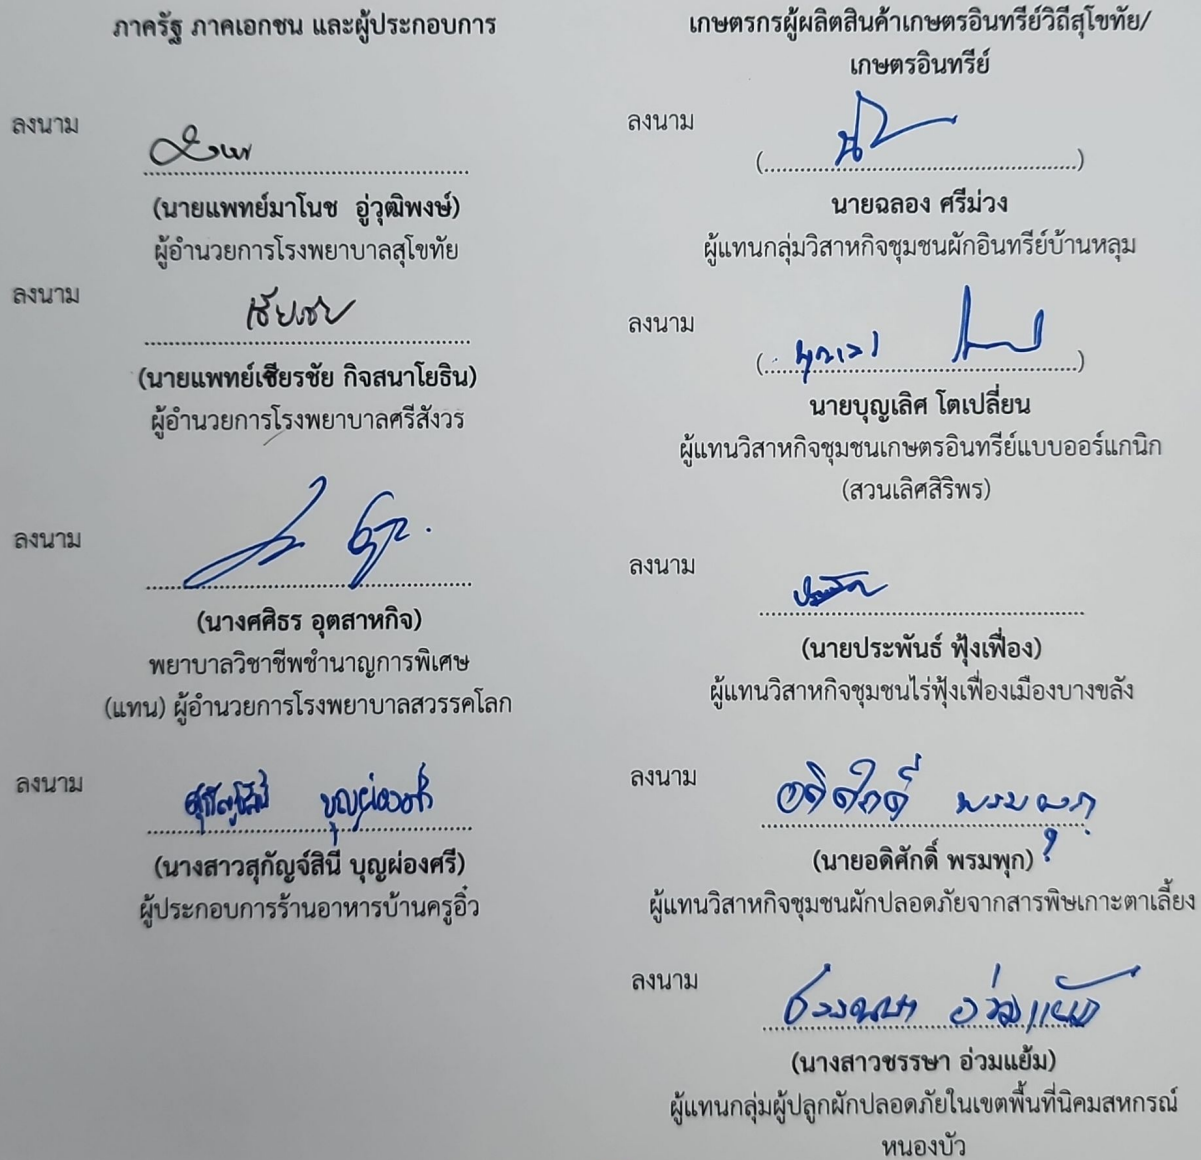 ภาครัฐ ภาคเอกชน และผู้ประกอบการ
ลงนาม
(นายแพทย์มาโนช อู่วุฒิพงษ์)
ผู้อำนวยการโรงพยาบาลสุโขทัย
ลงนาม
(นายแพทย์เชียรชัย กิจสนาโยธิน)
ผู้อำนวยการโรงพยาบาลศรีสังวร
ลงนาม
(นางศศิธร อุตสาหกิจ)
พยาบาลวิชาชีพชำนาญการพิเศษ
(แทน) ผู้อำนวยการโรงพยาบาลสวรรคโลก
ลงนาม
สุกัญจ์สินี บุญผ่องศรี
(นางสาวสุกัญจ์สินี บุญผ่องศรี)
ผู้ประกอบการร้านอาหารบ้านครูอิ๋ว
เกษตรกรผู้ผลิตสินค้าเกษตรอินทรีย์วิถีสุโขทัย/
เกษตรอินทรีย์
ลงนาม
นายฉลอง ศรีม่วง
ผู้แทนกลุ่มวิสาหกิจชุมชนผักอินทรีย์บ้านหลุม
ลงนาม
นายบุญเลิศ โตเปลี่ยน
ผู้แทนวิสาหกิจชุมชนเกษตรอินทรีย์แบบออร์แกนิก
(สวนเลิศสิริพร)
ลงนาม
(นายประพันธ์ ฟุ้งเฟื่อง)
ผู้แทนวิสาหกิจชุมชนไร่ฟุ้งเฟื่องเมืองบางขลัง
ลงนาม
อดิศักดิ์ พรมพุก
(นายอดิศักดิ์ พรมพุก)
ผู้แทนวิสาหกิจชุมชนผักปลอดภัยจากสารพิษเกาะตาเลี้ยง
ลงนาม
ชรรษา อ่วมแย้ม
(นางสาวชรรษา อ่วมแย้ม)
ผู้แทนกลุ่มผู้ปลูกผักปลอดภัยในเขตพื้นที่นิคมสหกรณ์
หนองบัว